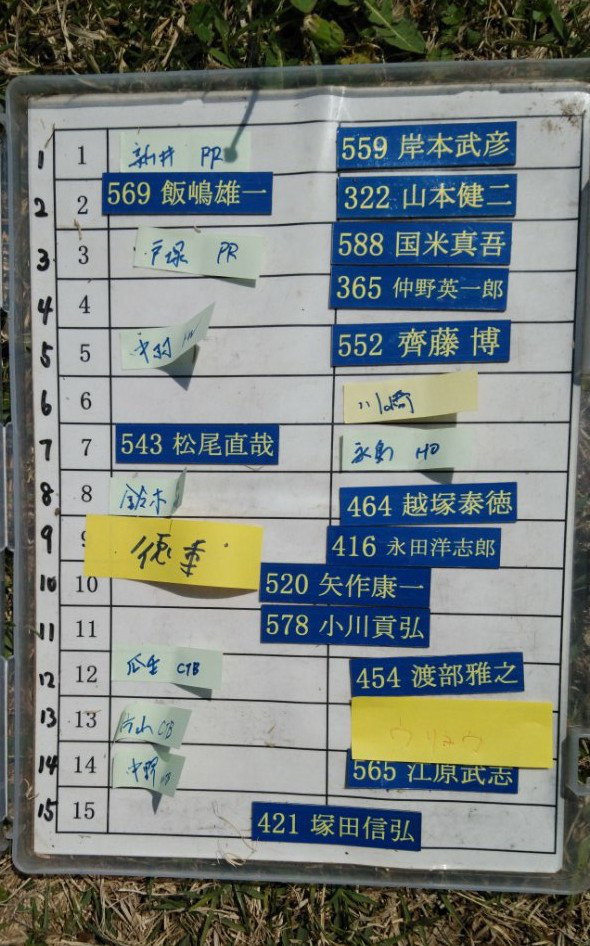 1 1 新井 PR 559 岸本武彦
2 2 569 飯嶋雄一 322 山本健二
3 3 戸塚 PR 588 国米真吾
4 4 365 仲野英一郎
5 5 552 齊藤 博
6 6 川崎
7 7 543 松尾直哉 永島 HO
8 8 鈴木 464 越塚泰徳
9 9 416 永田洋志郎
10 10 520 矢作康一
11 11 578 小川貢弘
12 12 瓜生 CTB 454 渡部雅之
13 13 片山 CTB ウリュウ
14 14 中野 565 江原武志
15 15 421 塚田信弘